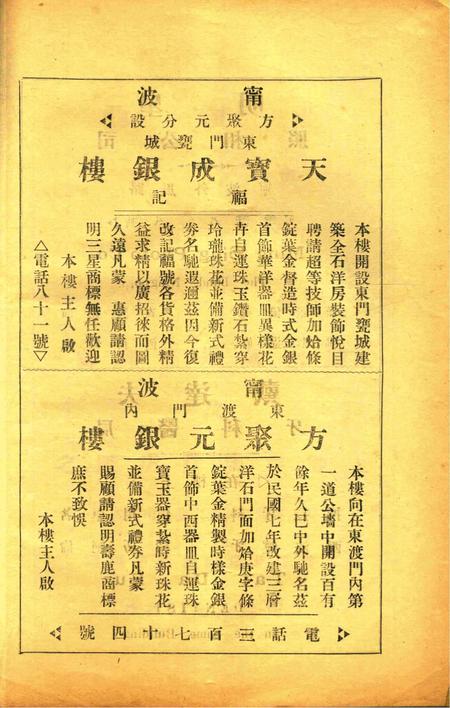 甯波
方聚元分設
東門甕城
天寶成銀樓
福記
本樓開設東門甕城建
築全石洋房裝飾悅目
聘請超等技師加烚條
錠葉金督造時式金銀
首飾華洋器皿異樣花
卉自運珠玉鑽石紮穿
玲瓏珠花並備新式禮
券名馳遐邇茲因今復
改記福號各貨格外精
益求精以廣招徠而圖
久遠凡蒙　惠顧請認
明三星商標無任歡迎
本樓主人啟
△電話八十一號▽
甯波
東渡門內
方聚元銀樓
本樓向在東渡門內第
一道公墻中開設百有
餘年久已中外馳名茲
於民國七年改建三層
洋石門面加烚庚字條
錠葉金精製時樣金銀
首飾中西器皿自運珠
寶玉器穿紮時新珠花
並備新式禮券凡蒙
賜顧請認明壽鹿商標
庶不致悞
本樓主人啟
電話三百七十四號